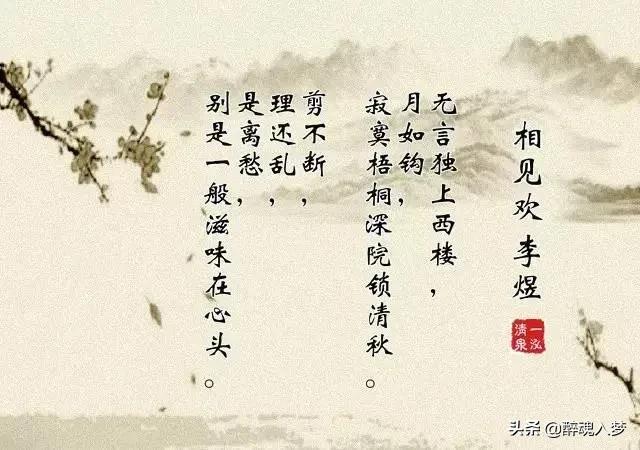 相见欢 李煜
无言独上西楼，
月如钩，
寂寞梧桐深院锁清秋。
剪不断，
理还乱，
是离愁，
别是一般滋味在心头。
一泓
清泉
头条 @醉魂入梦